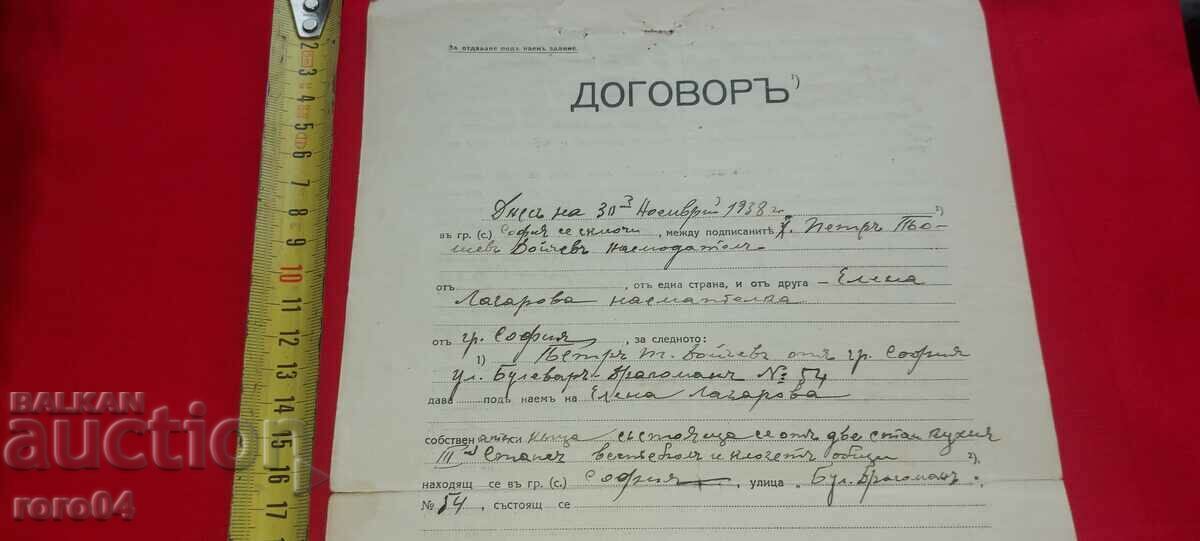 За отдаване подъ наемъ здание.
ДОГОВОРЪ ¹)
Днесъ на 30 Ноемврий 1938 г. ²)
въ гр. (с.) София се сключи, между подписаните Петръ
наемодатель
отъ , отъ една страна, и отъ друга — Елена
Лагарова наемателка
отъ гр. София, за следното:
1) Петръ Т. отъ гр. София
ул. Булеваръ Драгоманъ № 54
дава подъ наемъ на Елена Лагарова
собствен къща състояща се отъ две стаи кухня
III и клозетъ общи ²),
находящ се въ гр. (с.) София, улица „Бул. Драгоманъ“,
№ 54, състоящ се
2 3 4 5 6 7 8 9 10 11 12 13 14 15 16 17
BALKAN
auction
roro04